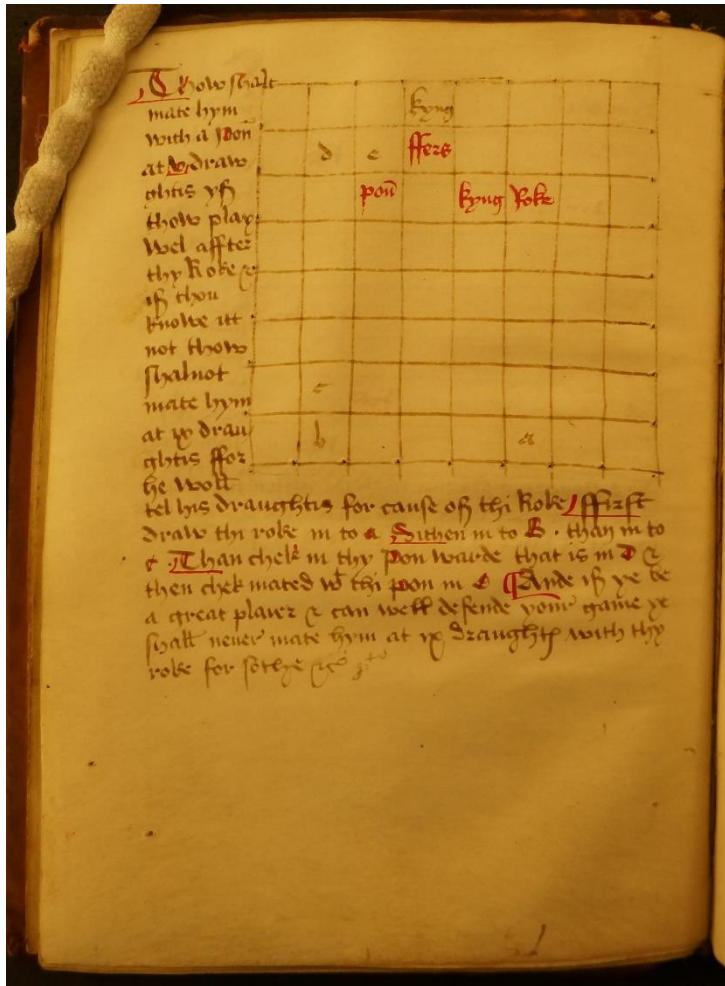 Thow shalt
mate hym
with a pon
at v draw
ghtis yff
thow play
wel affter
thy Roke &
iff thou
knowe itt
not thow
shal not
mate hym
at ix drau
ghtis ffor
he woll
kyng
d e ffers
pon̄ kyng Roke
c
b a
tel his draughtis for cause off thi Roke ffirst
draw thi roke in to a Sithen in to B · than in to
c · Than chek in thy pon warde that is in D &
then chek mated wt thi pon in e Ande iff ye be
a great player & can well defende your game ye
shall never mate hym at ix draughtꝭ with thy
roke for sothe &c